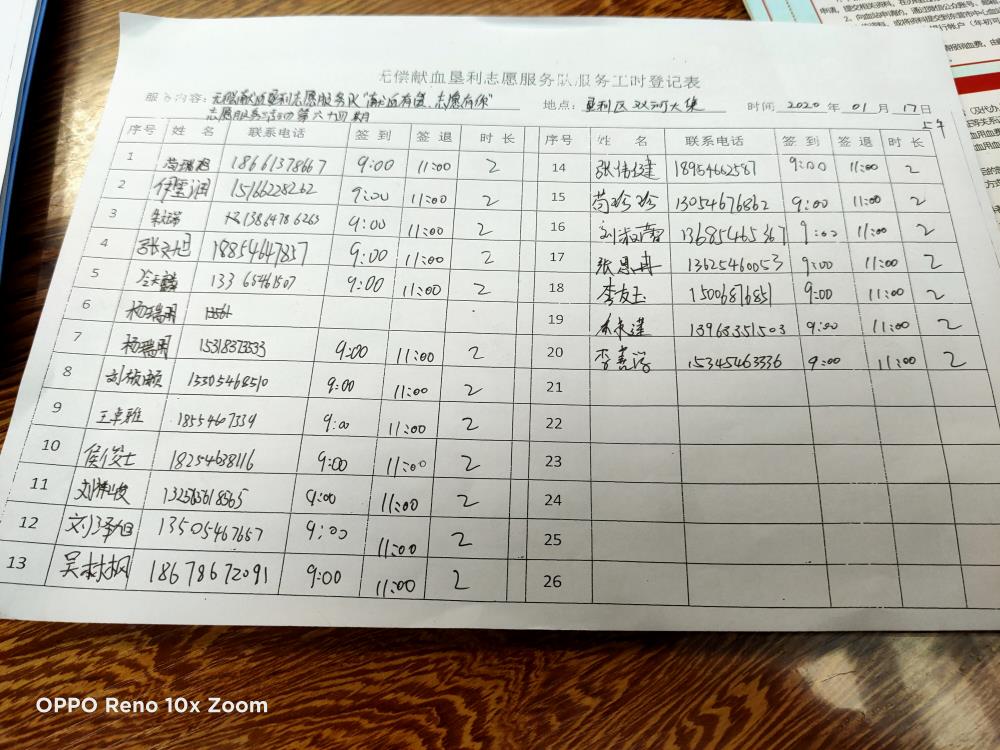 无偿献血垦利志愿服务队服务工时登记表
服务内容：无偿献血垦利志愿服务队“献血有你、志愿有你” 地点：垦利区双河大集 时间 2020 年 01 月 17日
志愿服务活动第六十四期 上午
序号 姓 名 联系电话 签 到 签 退 时 长 序号 姓 名 联系电话 签 到 签 退 时 长
1 18661378667 9:00 11:00 2 14 张伟建 18954662587 9:00 11:00 2
2 伊雪润 15166228262 9:00 11:00 2 15 苟珍珍 13054676862 9:00 11:00 2
3 13864786263 9:00 11:00 2 16 刘淑蕾 13685465367 9:00 11:00 2
4 张文旭 18854647857 9:00 11:00 2 17 张恩冉 13625460053 9:00 11:00 2
5 13365461507 9:00 11:00 2 18 李友玉 15006876851 9:00 11:00 2
6 杨瑞用 19 13963351503 9:00 11:00 2
7 杨瑞用 15318373533 9:00 11:00 2 20 李 15345463336 9:00 11:00 2
8 刘颜 15305468510 9:00 11:00 2 21
9 王卓雅 18554607339 9:00 11:00 2 22
10 侯俊士 18254638116 9:00 11:00 2 23
11 刘 9:00 11:00 2 24
12 刘泽旭 13505467657 9:00 11:00 2 25
13 吴树枫 18678672091 9:00 11:00 2 26
OPPO Reno 10x Zoom